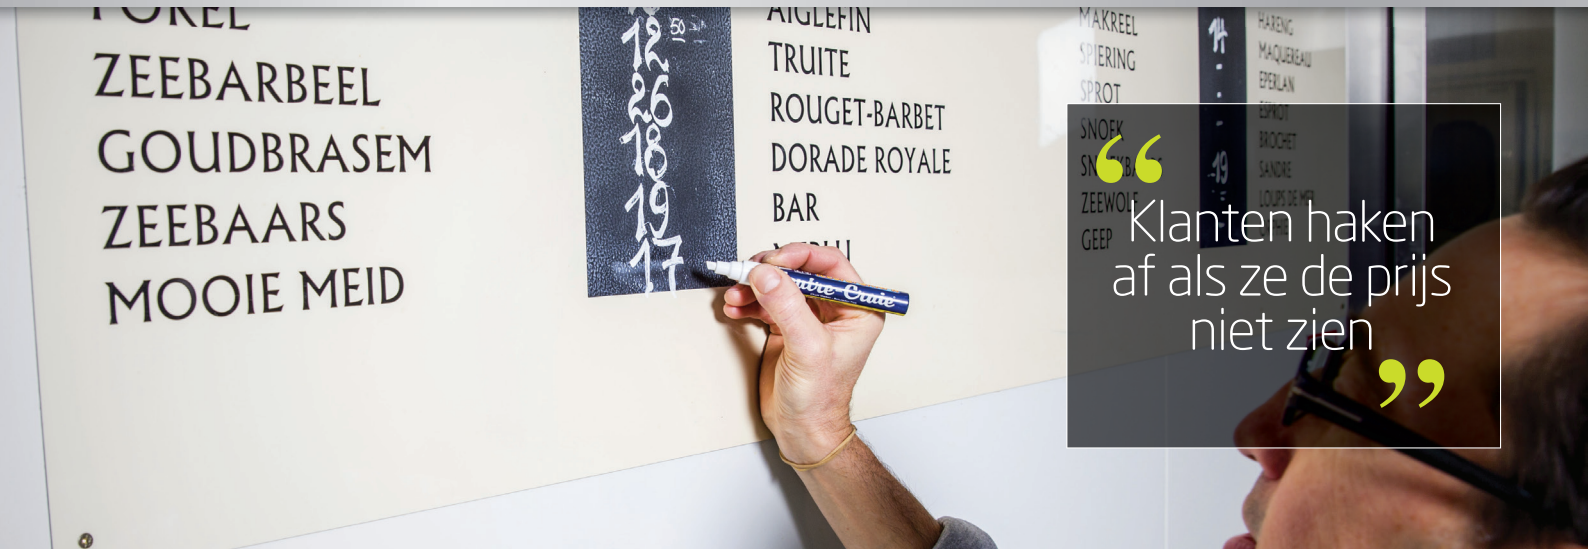 FOREL
ZEEBARBEEL
GOUDBRASEM
ZEEBAARS
MOOIE MEID
12 50
26
18
19
17
AIGLEFIN
TRUITE
ROUGET-BARBET
DORADE ROYALE
BAR
MAKREEL
SPIERING
SPROT
SNOEK
SNOEKBAARS
ZEEWOLF
GEEP
14
19
HARENG
MAQUEREAU
EPERLAN
ESPROT
BROCHET
SANDRE
LOUPS DE MER
“
Klanten haken
af als ze de prijs
niet zien
”